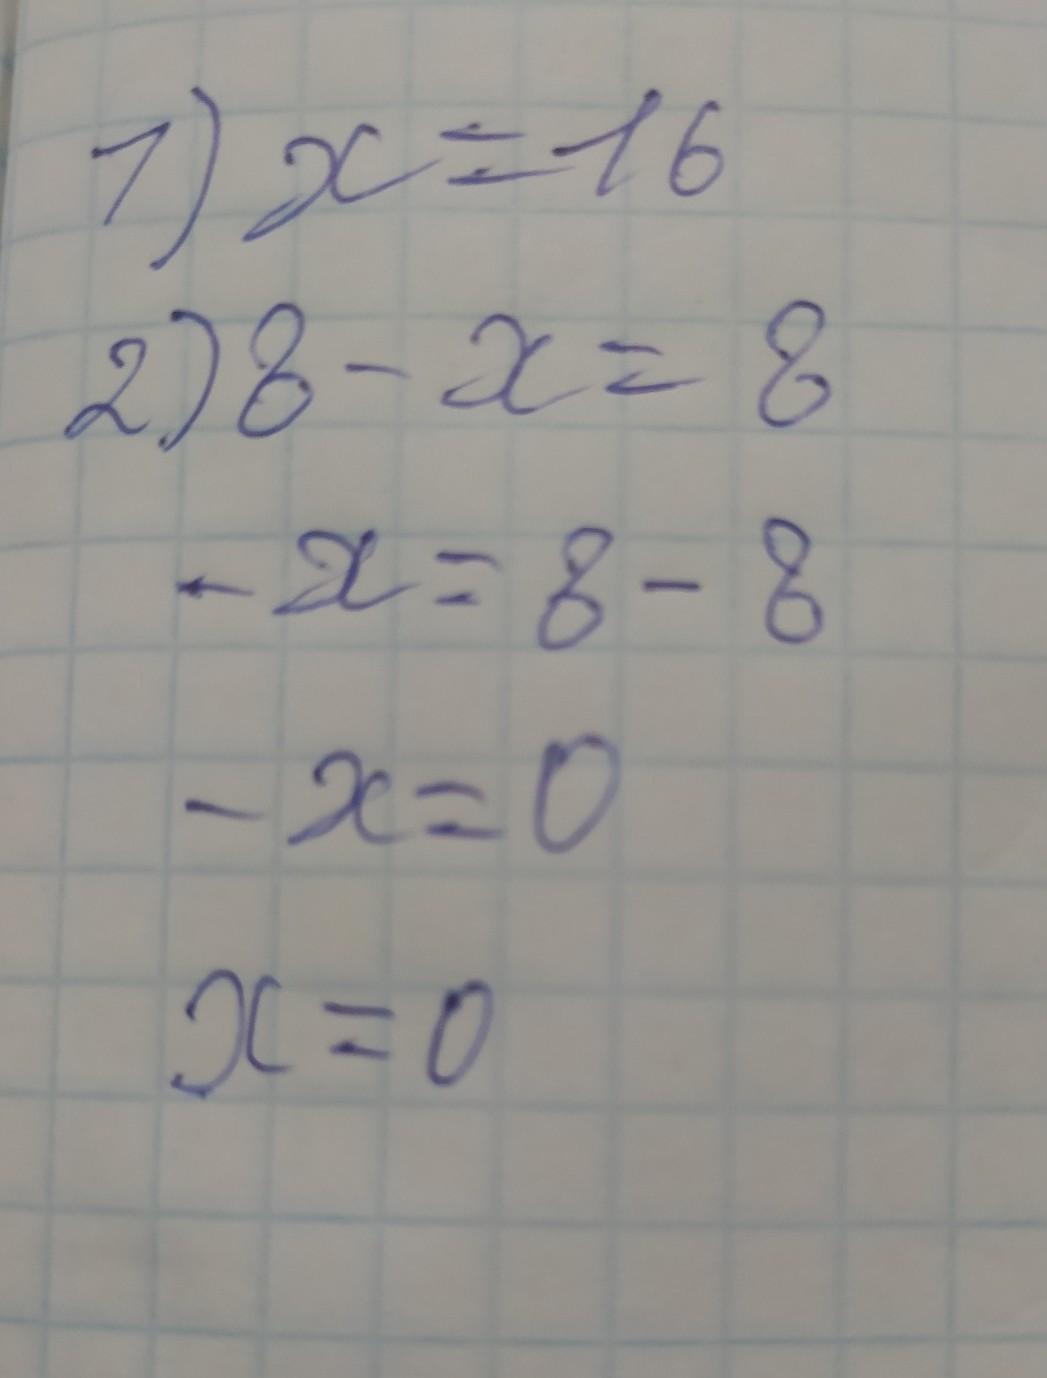 1) x = -16
2) 8 - x = 8
- x = 8 - 8
- x = 0
x = 0